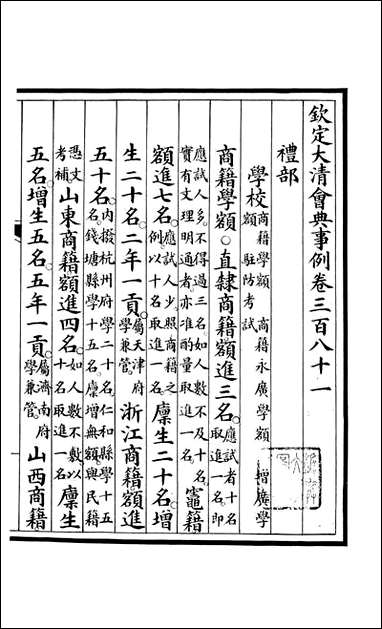 欽定大清會典事例卷三百八十一
禮部
學校商籍學額 商籍永廣學額 增廣學額 駐防考試
商籍學額○直隸商籍額進三名應試者十名取進一名即
應試人多不得過三名如人數不及十名實有文理明通者亦准酌量取進一名竈籍
額進七名應試人少照商籍之例以十名取進一名廩生二十名增
生二十名二年一貢屬天津府學兼管浙江商籍額進
五十名內撥杭州府學二十名仁和縣學十五名錢塘縣學十五名廩增無額與民籍
憑文考補山東商籍額進四名如人數不敷以十名取進一名廩生
五名增生五名五年一貢屬濟南府學兼管山西商籍